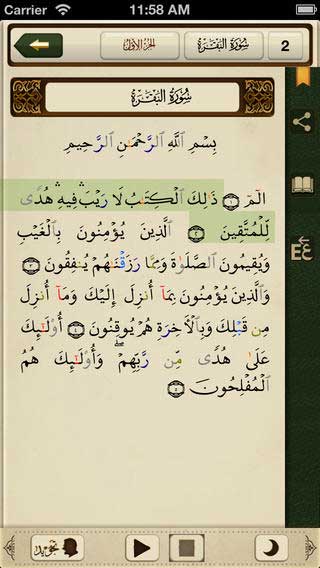 Carrier 11:58 AM
الجزء الأول سُورَةُ البَقَرَةِ 2
سُورَةُ البَقَرَةِ
بِسْمِ ٱللَّهِ ٱلرَّحْمَـٰنِ ٱلرَّحِيمِ
الٓمٓ ١ ذَٰلِكَ ٱلْكِتَـٰبُ لَا رَيْبَ ۛ فِيهِ ۛ هُدًى
لِّلْمُتَّقِينَ ٢ ٱلَّذِينَ يُؤْمِنُونَ بِٱلْغَيْبِ
وَيُقِيمُونَ ٱلصَّلَوٰةَ وَمِمَّا رَزَقْنَـٰهُمْ يُنفِقُونَ ٣
وَٱلَّذِينَ يُؤْمِنُونَ بِمَآ أُنزِلَ إِلَيْكَ وَمَآ أُنزِلَ
مِن قَبْلِكَ وَبِٱلْـَٔاخِرَةِ هُمْ يُوقِنُونَ ٤ أُو۟لَـٰٓئِكَ
عَلَىٰ هُدًى مِّن رَّبِّهِمْ ۖ وَأُو۟لَـٰٓئِكَ هُمُ
ٱلْمُفْلِحُونَ ٥
ع E
تجويد